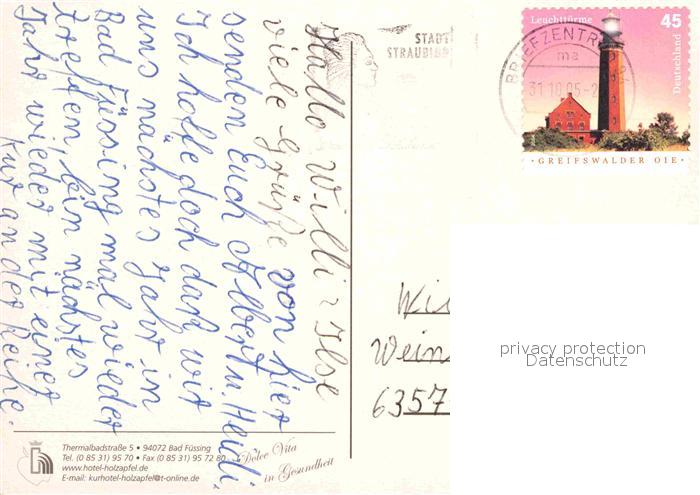 Hallo Willi u. Ilse
viele Grüße von hier
senden Euch Albert u. Heidi.
Ich hoffe doch daß wir
uns nächstes Jahr in
Bad Füssing mal wieder
treffen, bin nächstes
Jahr wieder mit einer
Kur an der Reihe.
Thermalbadstraße 5 • 94072 Bad Füssing
Tel. (0 85 31) 95 70 • Fax (0 85 31) 95 72 80
www.hotel-holzapfel.de
E-mail: kurhotel-holzapfel@t-online.de
Dolce Vita
in Gesundheit
STADT
STRAUBING
BRIEFZENTRUM
ma
31.10.05-2
Leuchttürme 45
Deutschland
• GREIFSWALDER OIE •
Wi
Wein
6357
privacy protection
Datenschutz